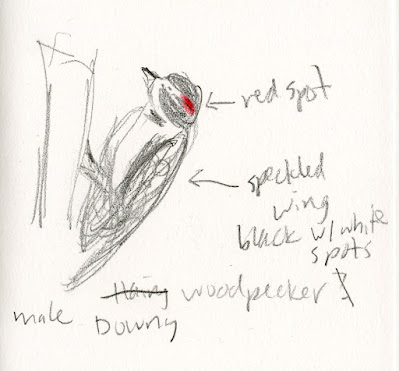 red spot
speckled
wing
black w/white
spots
Hairy woodpecker
male Downy